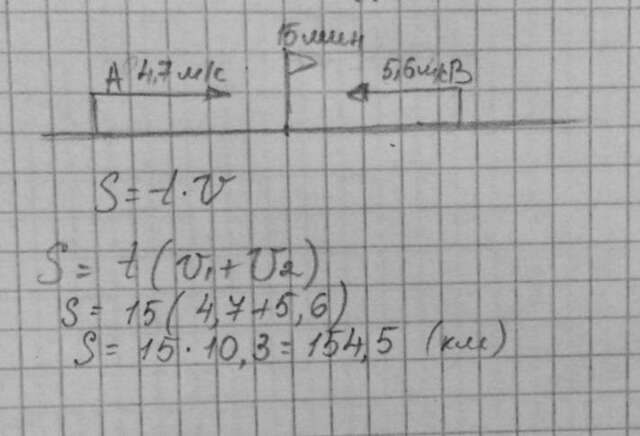 15 мин
A 4,7 м/с
5,6 м/с B
S = t · v
S = t (v₁ + v₂)
S = 15 (4,7 + 5,6)
S = 15 · 10,3 = 154,5 (км)